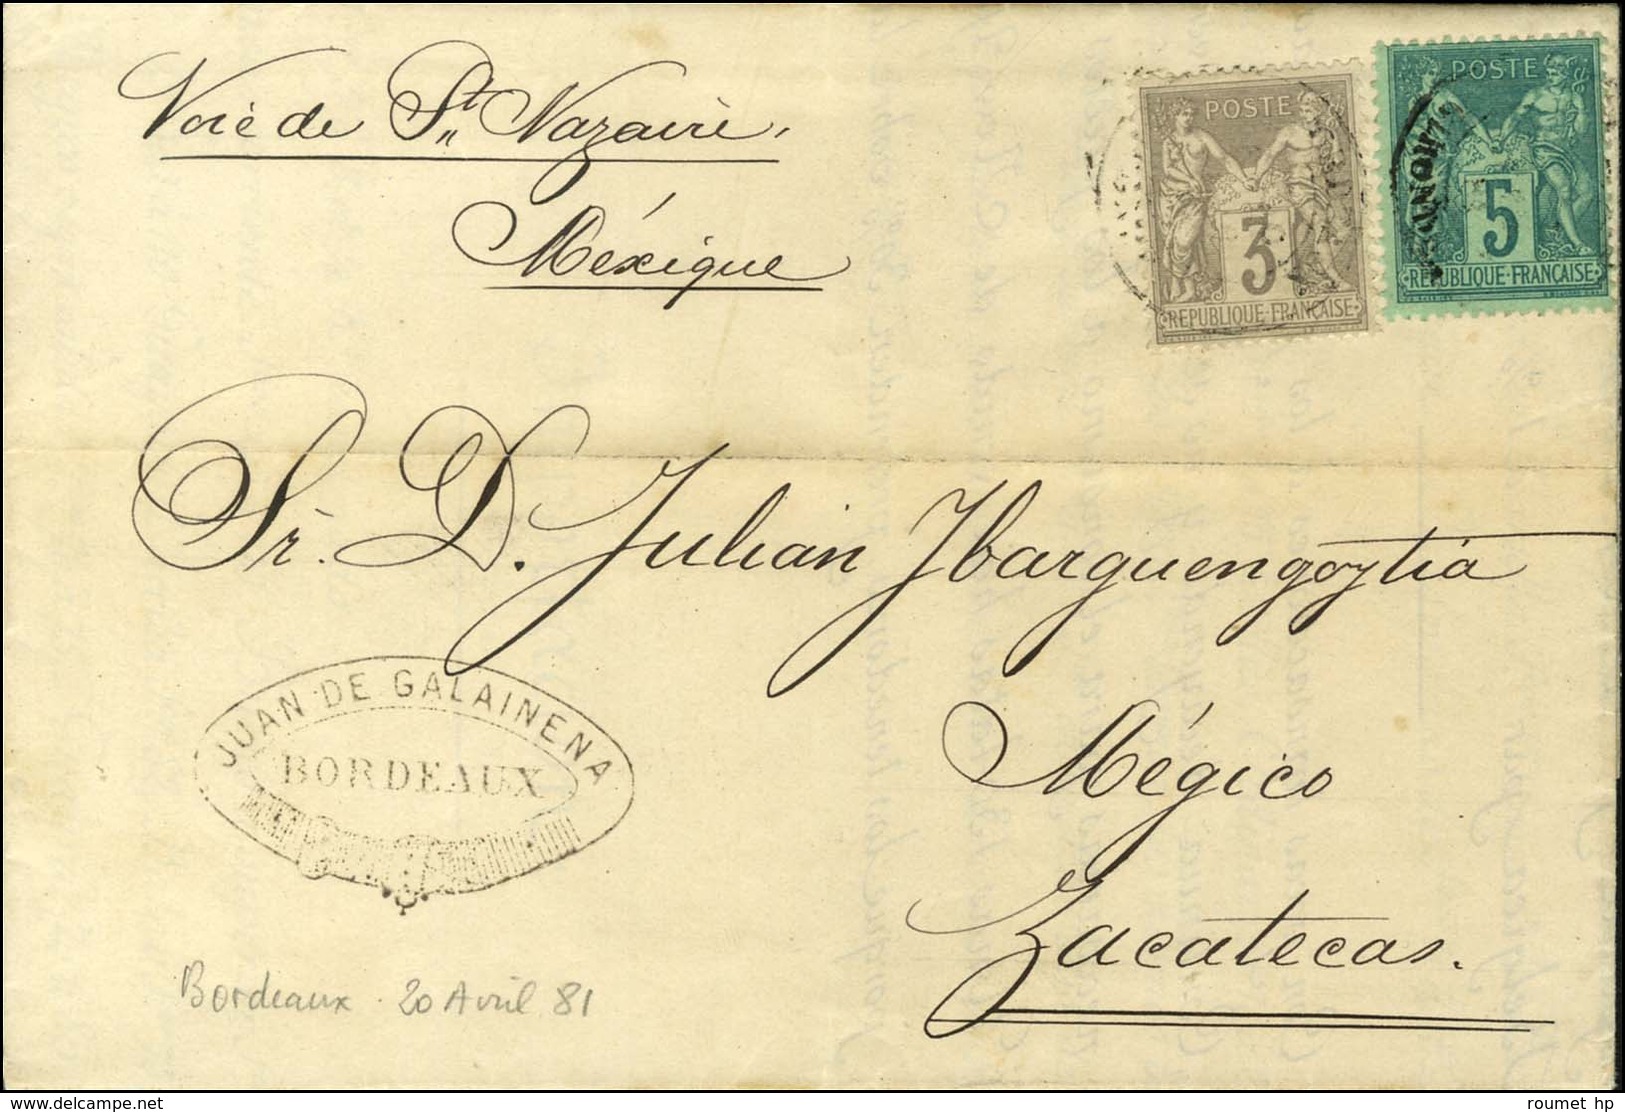 Voie de St Nazaire,
Méxique
POSTE
3
REPUBLIQUE FRANÇAISE
POSTE
5
REPUBLIQUE FRANÇAISE
Sr. D. Julian Ybarguengoytia
Mégico
Zacatecas.
JUAN DE GALAINENA
BORDEAUX
Bordeaux 20 Avril 81
www.delcampe.net
roumet hp